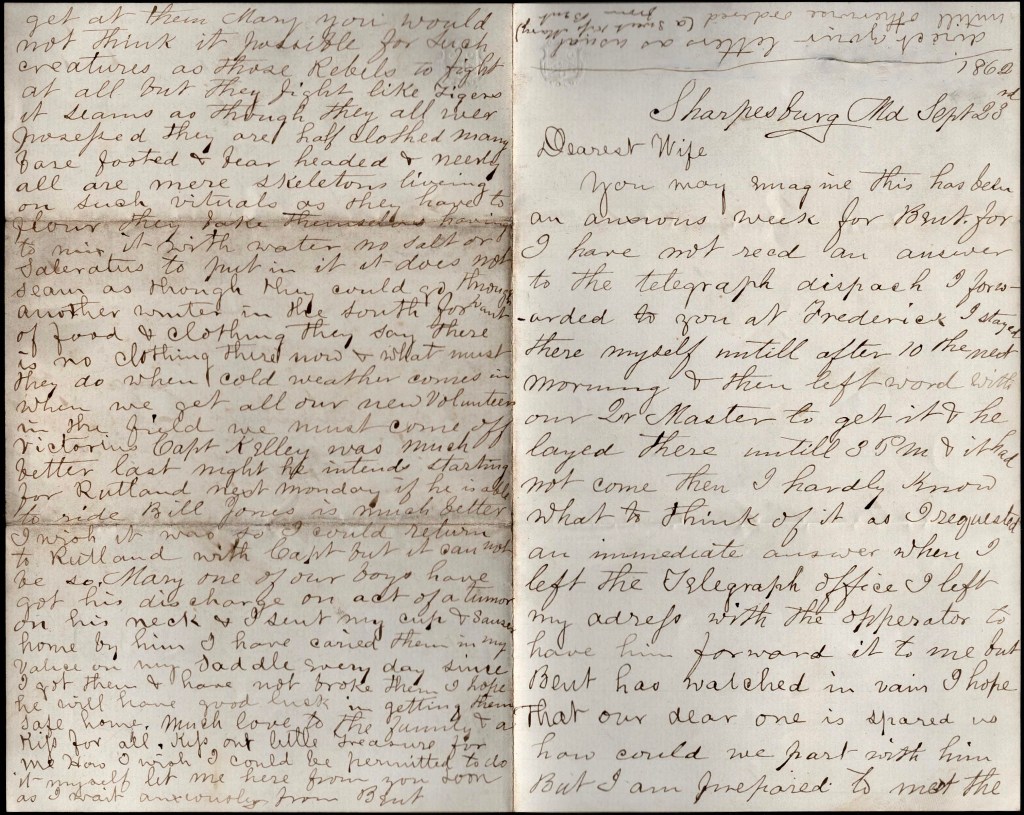 get at them Mary you would
not think it possible for such
creatures as those Rebels to fight
at all but they fight like Tigers
it seams as though they all wer
possessed they are half clothed many
bare footed & bear headed & neerly
all are mere skeletons liveing
on such vituals as they have to
flour they bake themselves having
to mix it with water no salt or
Saleratus to put in it it does not
seam as though they could go through
another winter in the south for want
of food & clothing they say there
is no clothing there now & what must
they do when cold weather comes in
when we get all our new Volunteers
in the field we must come off
victorius Capt Kelley was much
better last night he intends starting
for Rutland next monday if he is able
to ride Bill Jones is much better
I wish it was so I could return
to Rutland with Capt but it can not
be so, Mary one of our boys have
got his discharge on act of a tumor
on his neck & I sent my cup & Sauser
home by him I have caried them in my
valice on my Saddle every day since
I got them & have not broke them I hope
he will have good luck in getting them
safe home. Much love to the family & a
Kiss for all. Kiss our little treasure for
me How I wish I could be permitted to do
it myself let me here from you soon
as I wait anxiously from Bent
direct your letters as usual
untill otherwise ordered (a Sweet kiss Mary)
from Bent
1862
Sharpesburg Md Sept 23rd
Dearest Wife
You may imagine this has been
an anxious week for Bent. for
I have not recd an answer
to the telegraph dispach I forw-
-arded to you at Frederick I stayed
there myself untill after 10 the next
morning & then left word with
our Qr Master to get it & he
layed there untill 3 P M & it had
not come then I hardly know
what to think of it as I requested
an immediate answer when I
left the Telegraph office I left
my adress with the opperator to
have him forward it to me but
Bent has watched in vain I hope
that our dear one is spared us
how could we part with him
But I am prepared to meet the